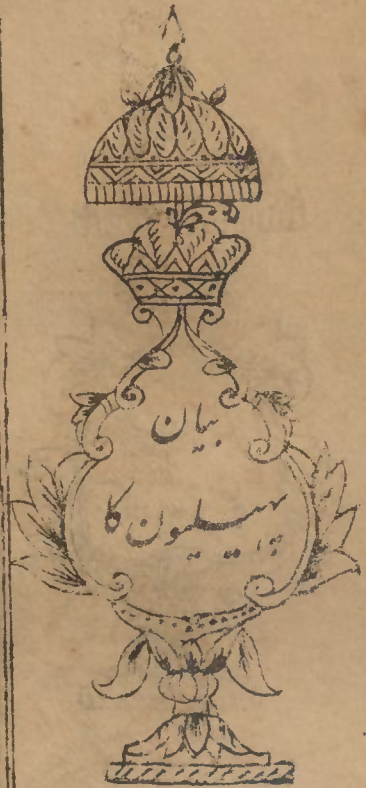 بیان
پہیلیون کا